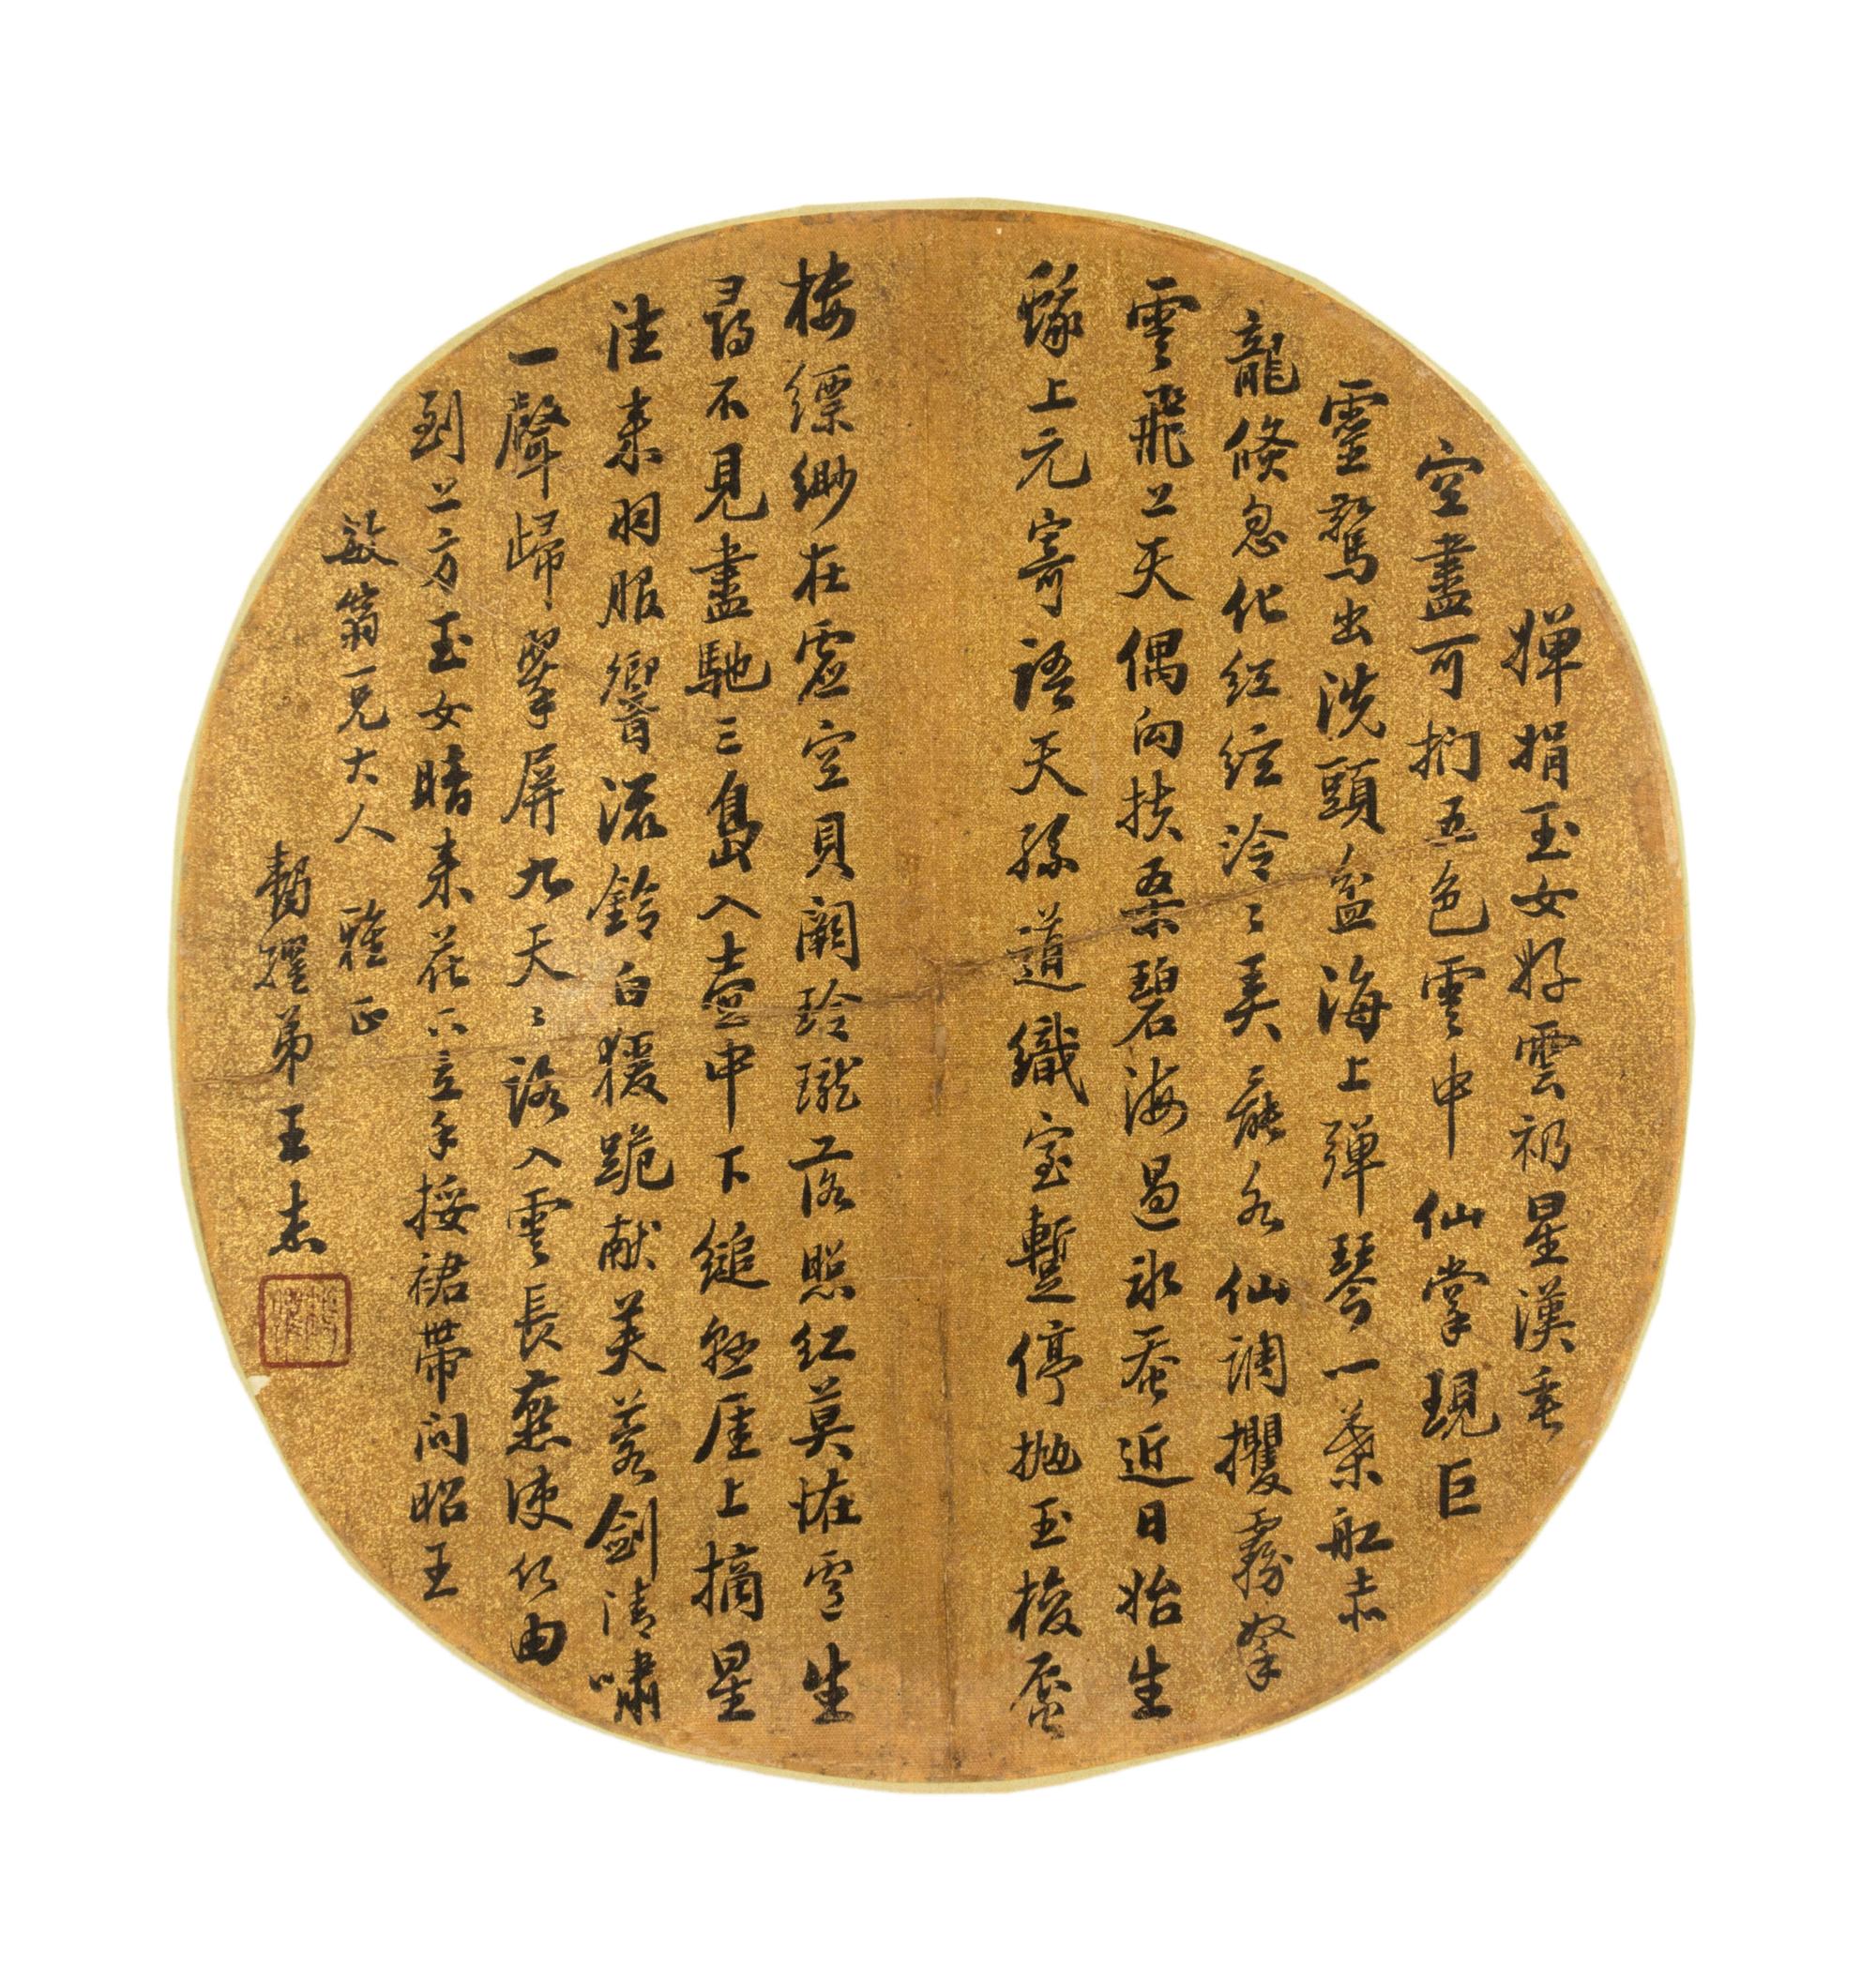 嬋娟玉女好雲礽星漢垂
空盡可捫五色雲中仙掌現巨
靈驚出洗頭盆海上彈琴一葉舡赤
龍倏忽化紅綃泠〻美疏水仙調攫霧拏
雲飛上天偶向扶桑碧海過冰蚕近日始生
蛾上元寄語天孫道織室暫停拋玉梭蜃
樓縹緲在虛空貝闕玲瓏落照紅莫怪雪生
尋不見盡馳三島入壺中下縋懸崖上摘星
往來羽服響流鈴白猿跪献芙蓉劍清嘯
一聲歸翠屏九天〻語入雲長燕使仍由
到上方玉女暗來花下立手挼裙帶问昭王
敏翁一兄大人 雅正
 弟王志